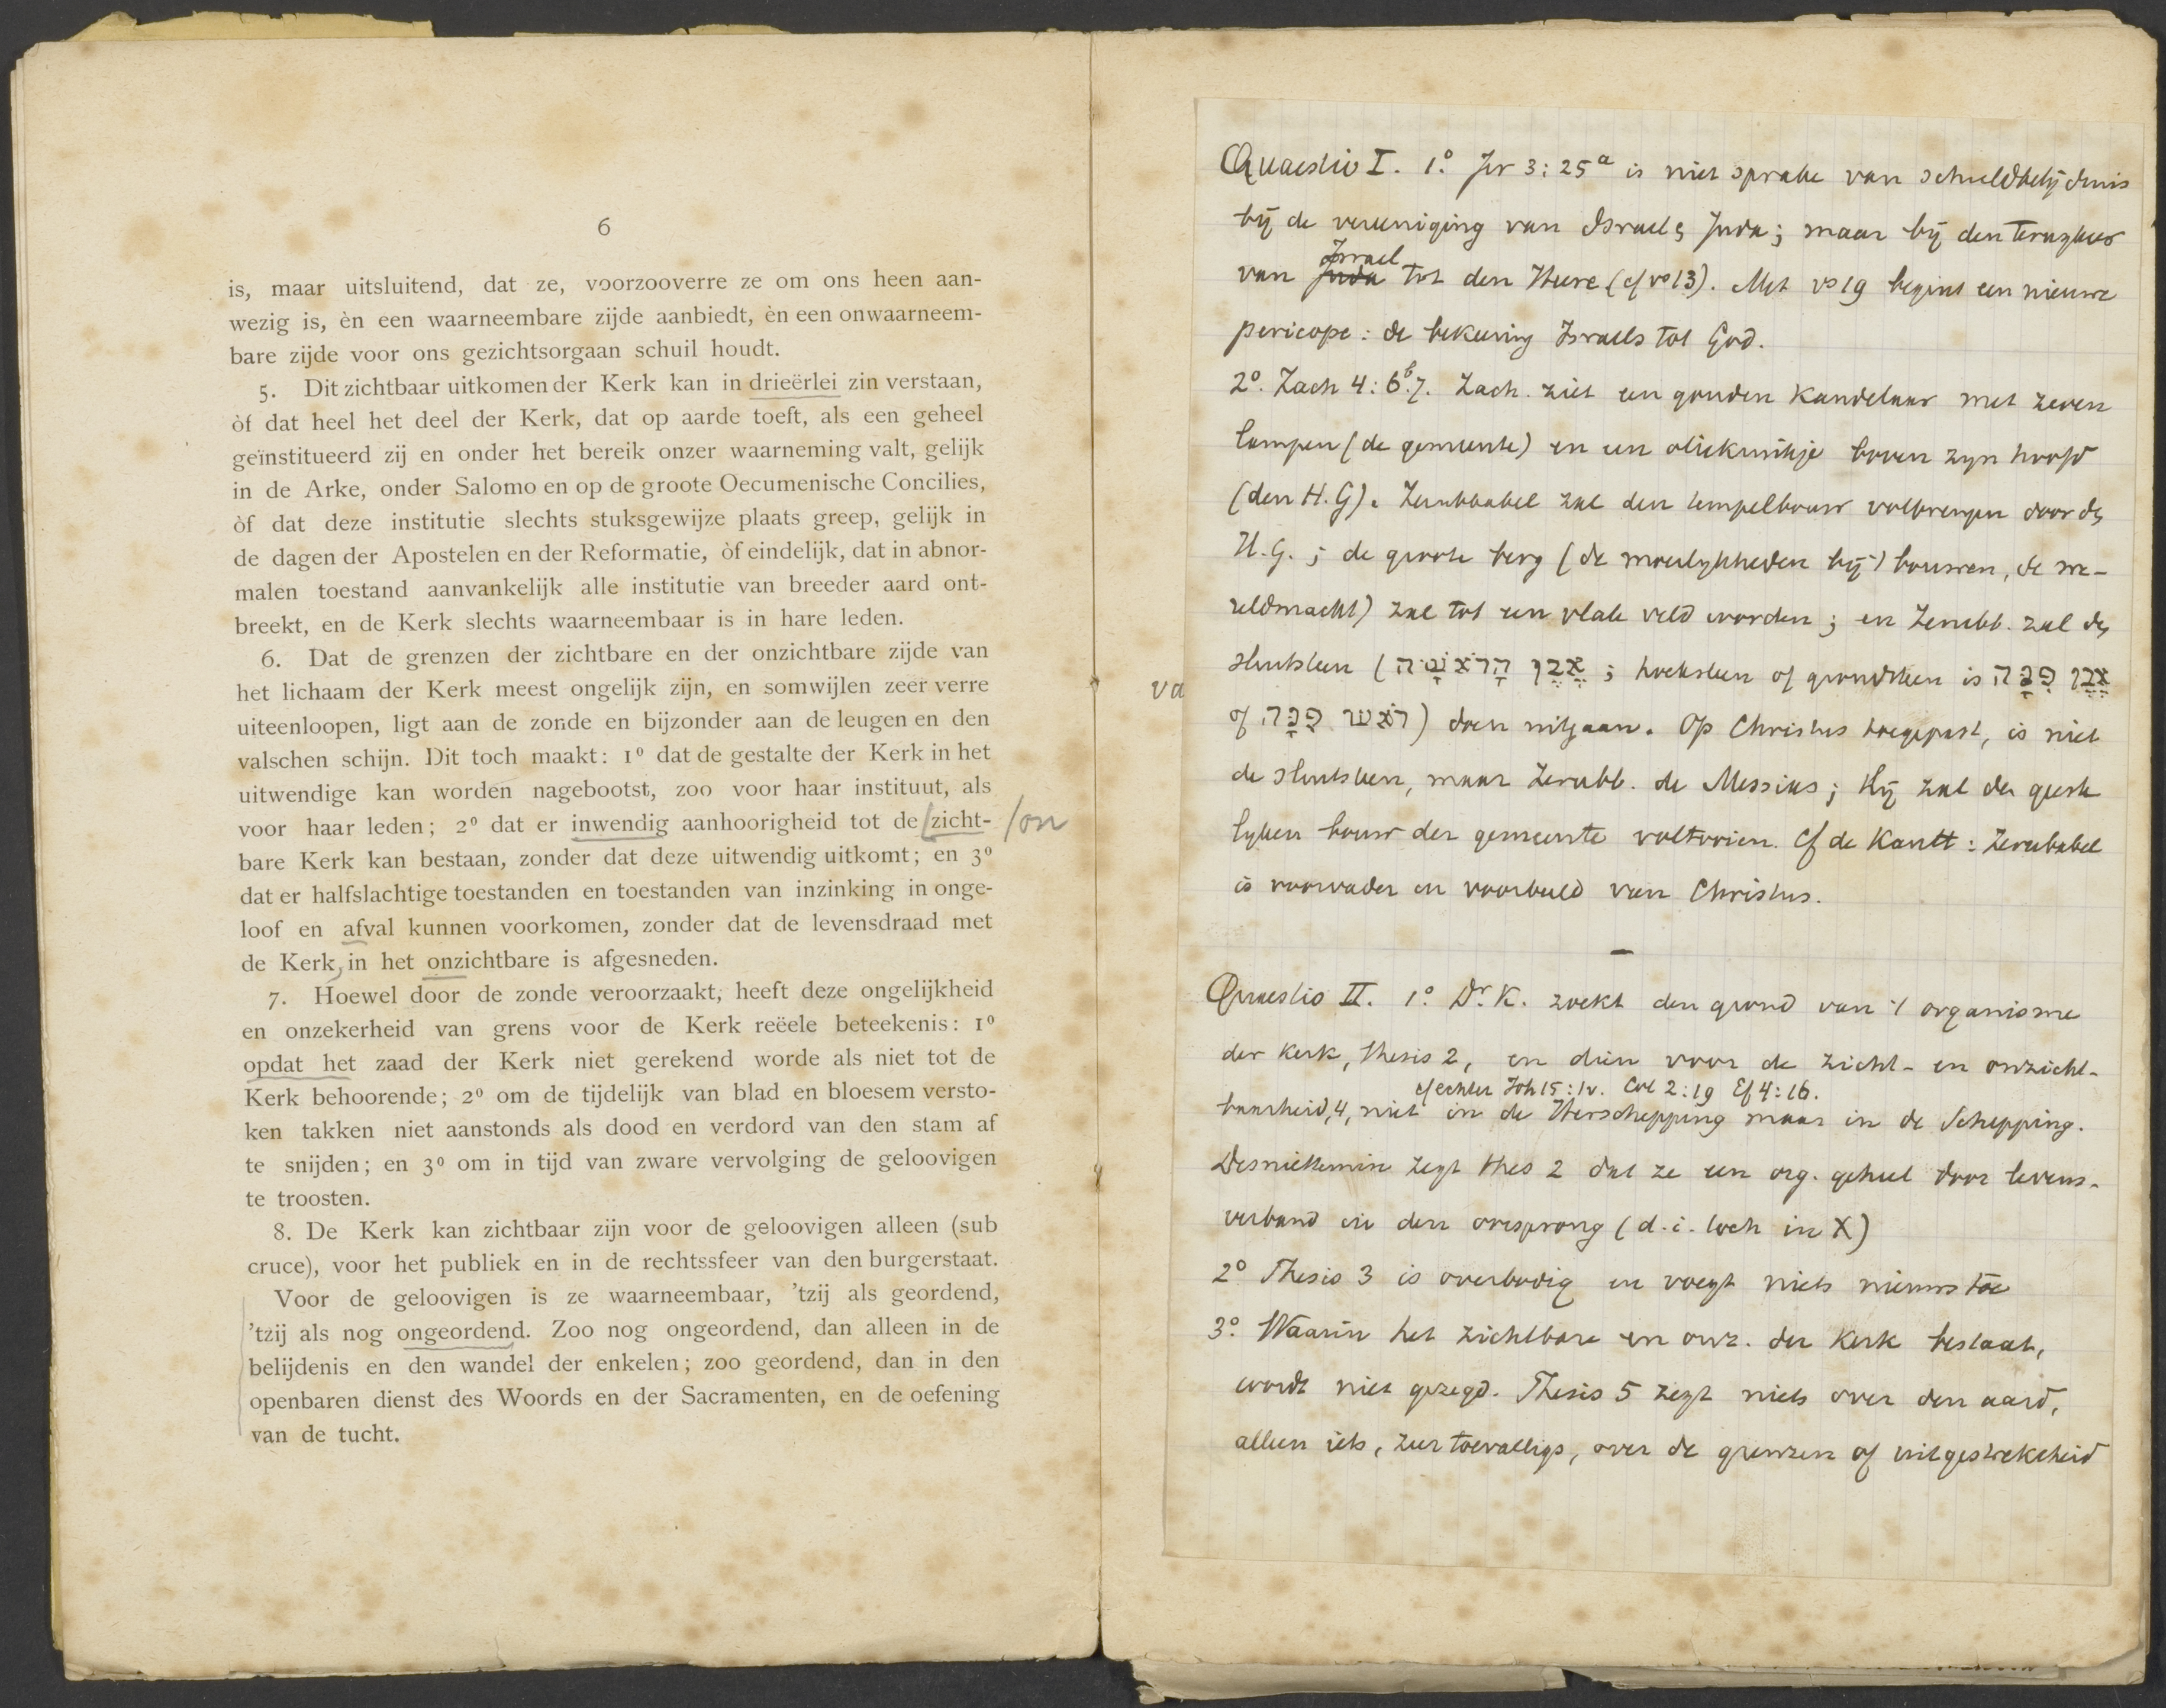 6
is, maar uitsluitend, dat ze, voorzooverre ze om ons heen aan-
wezig is, èn een waarneembare zijde aanbiedt, èn een onwaarneem-
bare zijde voor ons gezichtsorgaan schuil houdt.
5. Dit zichtbaar uitkomen der Kerk kan in drieërlei zin verstaan,
òf dat heel het deel der Kerk, dat op aarde toeft, als een geheel
geïnstitueerd zij en onder het bereik onzer waarneming valt, gelijk
in de Arke, onder Salomo en op de groote Oecumenische Concilies,
òf dat deze institutie slechts stuksgewijze plaats greep, gelijk in
de dagen der Apostelen en der Reformatie, òf eindelijk, dat in abnor-
malen toestand aanvankelijk alle institutie van breeder aard ont-
breekt, en de Kerk slechts waarneembaar is in hare leden.
6. Dat de grenzen der zichtbare en der onzichtbare zijde van
het lichaam der Kerk meest ongelijk zijn, en somwijlen zeer verre
uiteenloopen, ligt aan de zonde en bijzonder aan de leugen en den
valschen schijn. Dit toch maakt: 1º dat de gestalte der Kerk in het
uitwendige kan worden nagebootst, zoo voor haar instituut, als
voor haar leden; 2º dat er inwendig aanhoorigheid tot de /zicht- /on
bare Kerk kan bestaan, zonder dat deze uitwendig uitkomt; en 3º
dat er halfslachtige toestanden en toestanden van inzinking in onge-
loof en afval kunnen voorkomen, zonder dat de levensdraad met
de Kerk, in het onzichtbare is afgesneden.
7. Hoewel door de zonde veroorzaakt, heeft deze ongelijkheid
en onzekerheid van grens voor de Kerk reëele beteekenis: 1º
opdat het zaad der Kerk niet gerekend worde als niet tot de
Kerk behoorende; 2º om de tijdelijk van blad en bloesem versto-
ken takken niet aanstonds als dood en verdord van den stam af
te snijden; en 3º om in tijd van zware vervolging de geloovigen
te troosten.
8. De Kerk kan zichtbaar zijn voor de geloovigen alleen (sub
cruce), voor het publiek en in de rechtssfeer van den burgerstaat.
Voor de geloovigen is ze waarneembaar, 'tzij als geordend,
'tzij als nog ongeordend. Zoo nog ongeordend, dan alleen in de
belijdenis en den wandel der enkelen; zoo geordend, dan in den
openbaren dienst des Woords en der Sacramenten, en de oefening
van de tucht.
va
Quaestio I. 1º. Jer 3:25ª is niet sprake van schuldbelijdenis
bij de vereeniging van Israel & Juda; maar bij den terugkeer
Israel
van Juda tot den Heere (cf vs 13). Met vs 19 begint een nieuwe
pericope: de bekeering Israels tot God.
2º. Zach 4:6ᵇ.7. Zach. ziet een gouden kandelaar met zeven
lampen (de gemeente) en een oliekruikje boven zijn hoofd
(den H.G). Zerubbabel zal den tempelbouw volbrengen door den
H.G.; de groote berg (de moeilykheden bij 't bouwen, de we-
reldmacht) zal tot een vlak veld worden; en Zerubb. zal den
sluitsteen (אֶבֶן הָרֹאשָׁה; hoeksteen of grondsteen is אֶבֶן פִּנָּה
of רֹאשׁ פִּנָּה) doen uitgaan. Op Christus toegepast, is niet
de sluitsteen, maar Zerubb. de Messias; Hij zal den geeste
lyken bouw der gemeente voltooien. Cf de Kantt: Zerubabel
is voorvader en voorbeeld van Christus.
Quaestio II. 1º. Dr. K. zoekt den grond van 't organisme
der Kerk, thesis 2, en dien voor de zicht- en onzicht-
cf echter Joh 15:1v. Col 2:19 Ef 4:16.
baarheid, 4, niet in de Herschepping maar in de Schepping.
Desniettemin zegt thes 2 dat ze een org. geheel door levens-
verband in den oorsprong (d.i. toch in X)
2º Thesis 3 is overbodig en voegt niets nieuws toe
3º. Waarin het zichtbare en onz. der Kerk bestaat,
wordt niet gezegd. Thesis 5 zegt niets over den aard,
alleen iets, zeer toevalligs, over de grenzen of uitgestrektheid